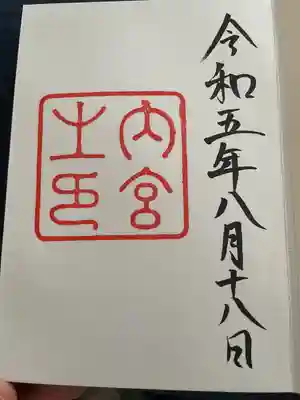 令和五年八月十八日
内宮
之印